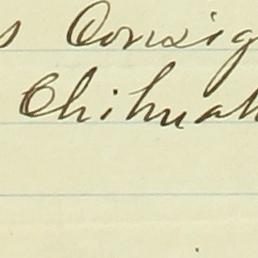 s Consig
Chihuah